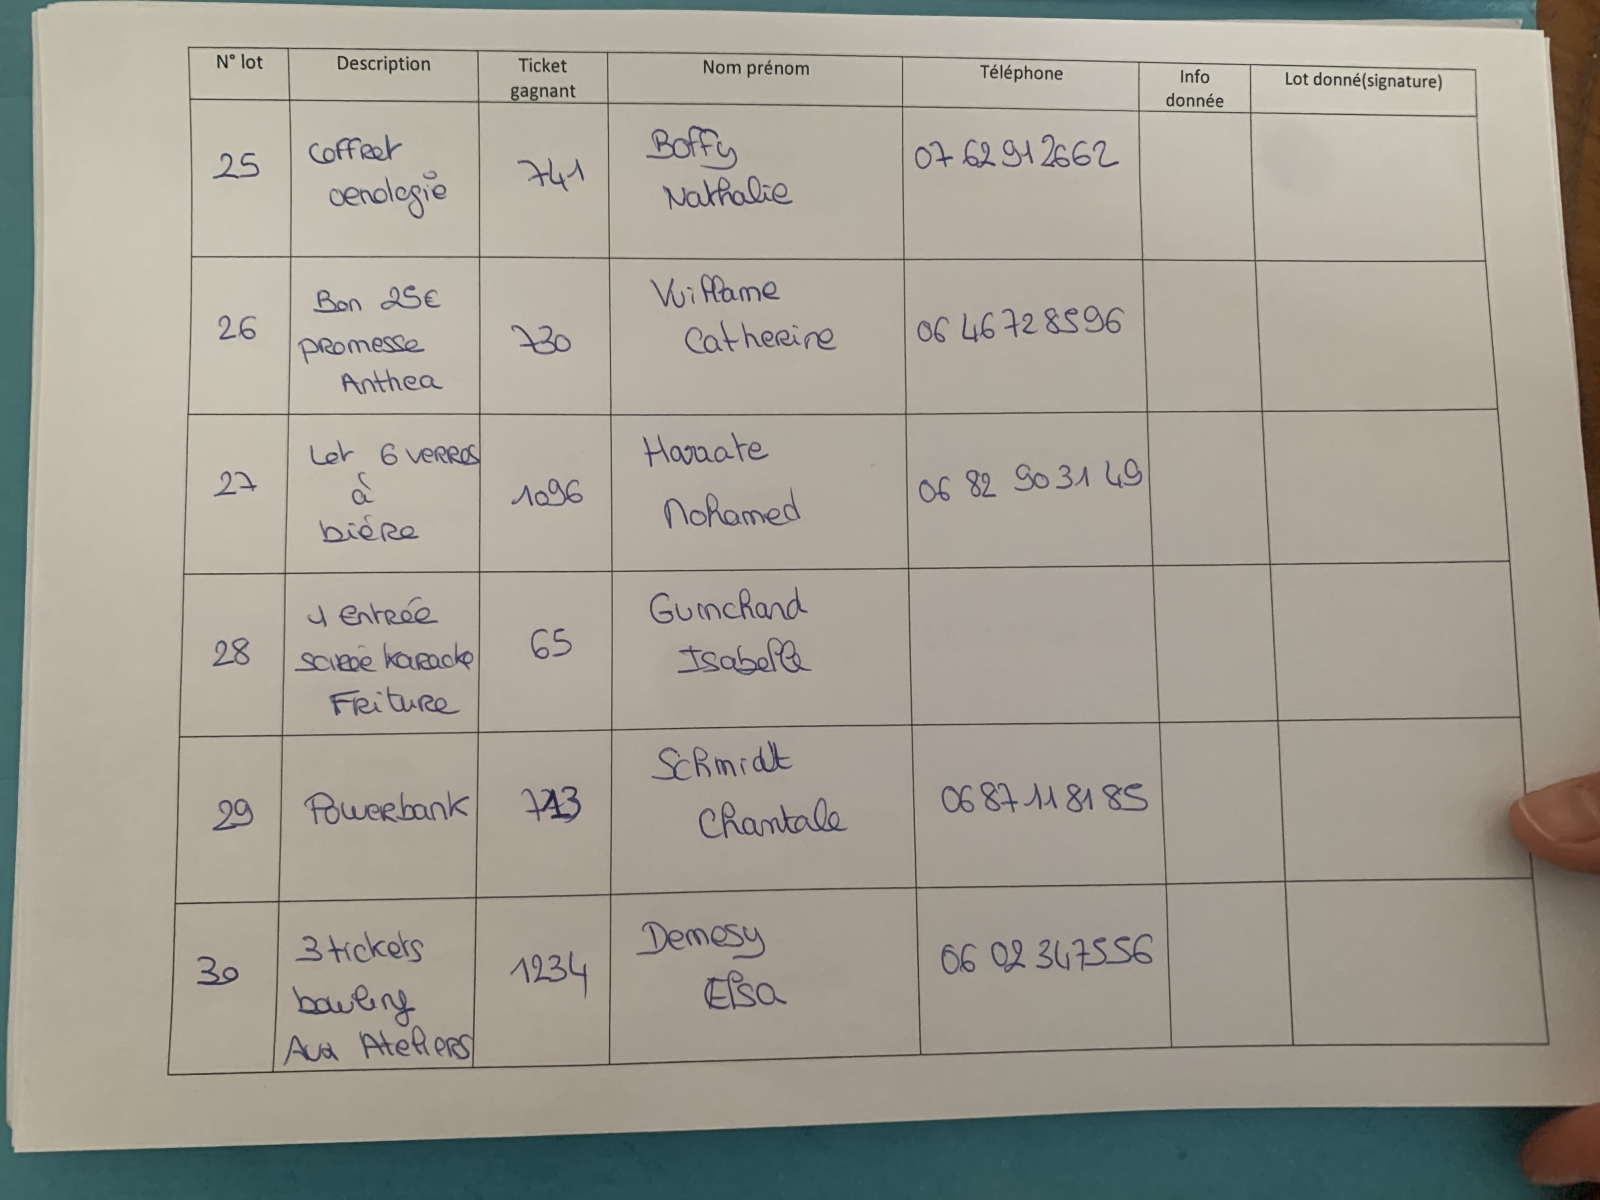 N° lot Description Ticket gagnant Nom prénom Téléphone Info donnée Lot donné(signature)
25 Coffret oenologie 741 Boffy Nathalie 07 62 91 26 62
26 Bon 25€ promesse Anthea 730 Vuillame Catherine 06 46 72 85 96
27 Lot 6 verres à bière 1096 Haraate Mohamed 06 82 90 31 49
28 1 entrée soirée karaoke Friture 65 Guinchard Isabelle
29 Powerbank Schmidt Chantale 06 87 11 81 85
30 3 tickets bowling Aux Ateliers 1234 Demesy Elsa 06 02 34 75 56